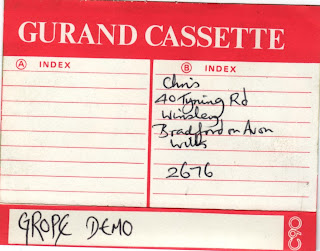 GURAND CASSETTE
A INDEX
B INDEX
Chris
40 Tyning Rd
Winsley
Bradford on Avon
Wilts
2676
GROPE DEMO
C90